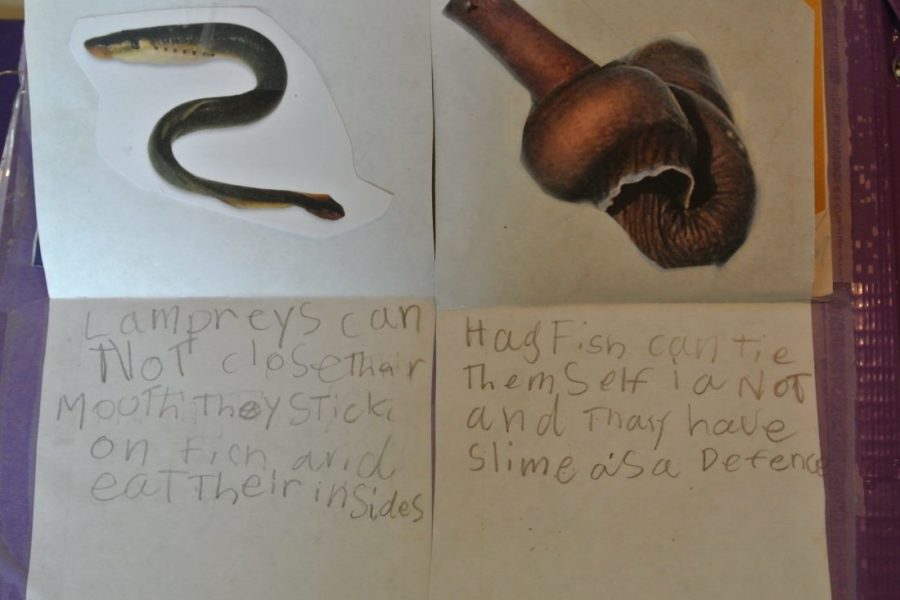 Lampreys can
Not close Thair
Mouth They stick
on fich and
eat Their insides
Hag Fish can tie
Themself i a Not
and Thay have
slime as a Defence